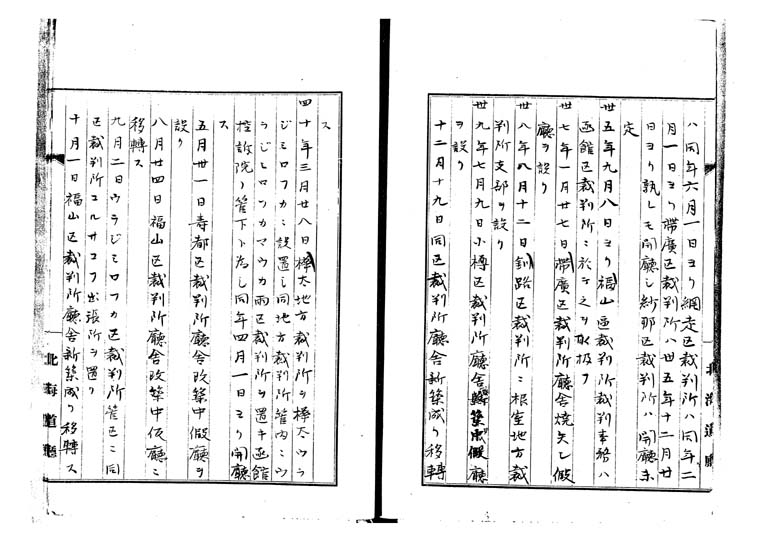 八同年六月一日ヨリ網走区裁判所ハ同年二
月一日ヨリ帯廣区裁判所ハ卅五年十二月廿
日ヨリ孰レモ開廳シ紗那区裁判所ハ開廳未
定
卅五年九月八日ヨリ福山區裁判所裁判事務ハ
函館区裁判所ニ於テ之ヲ取扱フ
卅七年一月廿七日帯廣区裁判所廳舎焼失シ假
廳ヲ設ク
卅八年八月十二日釧路区裁判所ニ根室地方裁
判所支部ヲ設ク
卅九年七月九日小樽区裁判所廳舎新築中假廳
ヲ設ク
十二月十九日同区裁判所廳舎新築成リ移轉
北海道廳
ス
四十年三月廿八日樺太地方裁判所ヲ樺太ウラ
ジミロフカニ設置シ同地方裁判所管内ニウ
ラジミロフカマウカ両区裁判所ヲ置キ函館
控訴院ノ管下ト為シ同年四月一日ヨリ開廳
ス
五月卅一日寿都区裁判所廳舎改築中假廳ヲ
設ク
八月廿四日福山区裁判所廳舎改築中仮廳ニ
移轉ス
九月二日ウラジミロフカ区裁判所管区ニ同
区裁判所コルサコフ出張所ヲ置ク
十月一日福山区裁判所廳舎新築成リ移轉ス
北海道廳